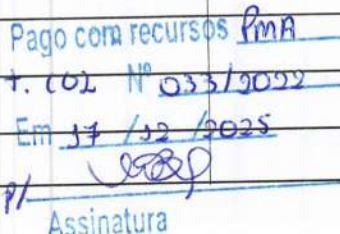 Pago com recursos PMA
T. COL Nº 033/2022
Em 17 /12 /2025
p/
Assinatura